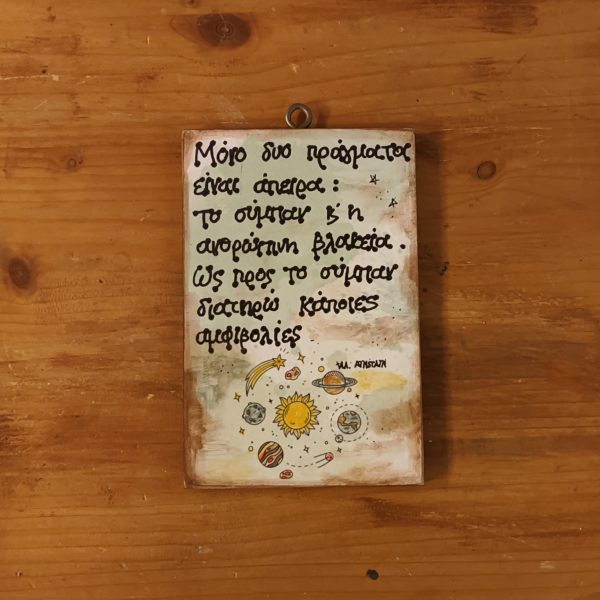 Μόνο δυο πράγματα
είναι άπειρα:
το σύμπαν κ' η
ανθρώπινη βλακεία.
Ως προς το σύμπαν
διατηρώ κάποιες
αμφιβολίες
ΑΛ. ΑΪΝΣΤΑΪΝ